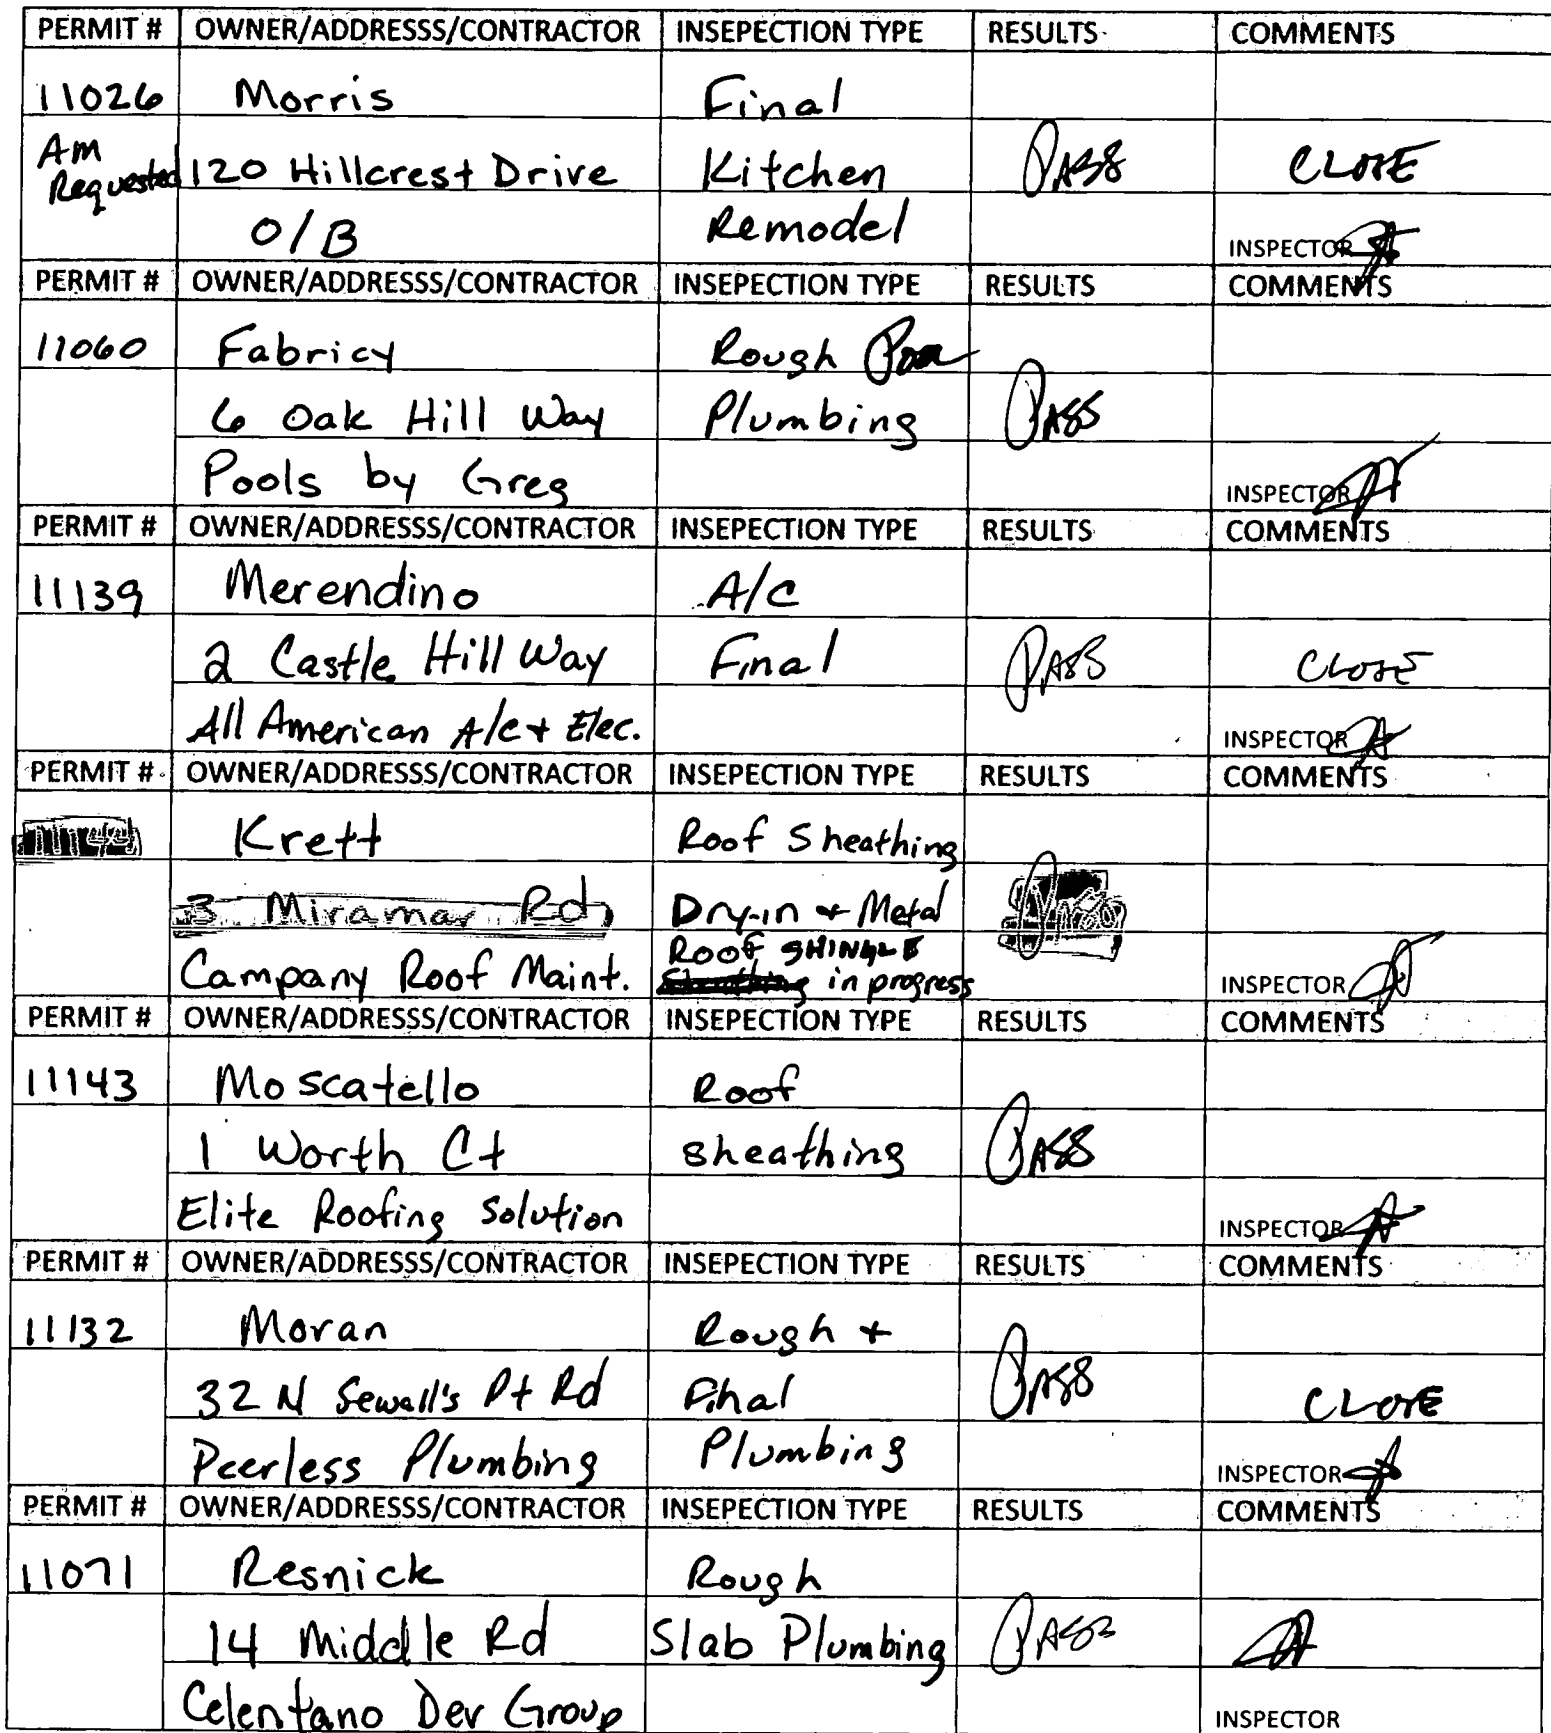 PERMIT # OWNER/ADDRESSS/CONTRACTOR INSEPECTION TYPE RESULTS COMMENTS
11026 Morris Final
Am Requested 120 Hillcrest Drive Kitchen PASS CLOSE
O/B Remodel INSPECTOR
PERMIT # OWNER/ADDRESSS/CONTRACTOR INSEPECTION TYPE RESULTS COMMENTS
11060 Fabricy Rough
6 Oak Hill Way Plumbing PASS
Pools by Greg INSPECTOR
PERMIT # OWNER/ADDRESSS/CONTRACTOR INSEPECTION TYPE RESULTS COMMENTS
11139 Merendino A/C
2 Castle Hill Way Final PASS CLOSE
All American A/C + Elec. INSPECTOR
PERMIT # OWNER/ADDRESSS/CONTRACTOR INSEPECTION TYPE RESULTS COMMENTS
Krett Roof Sheathing
3 Miramar Rd Dry-in + Metal
Company Roof Maint. Roof SHINGLE in progress INSPECTOR
PERMIT # OWNER/ADDRESSS/CONTRACTOR INSEPECTION TYPE RESULTS COMMENTS
11143 Moscatello Roof
1 Worth Ct sheathing PASS
Elite Roofing Solution INSPECTOR
PERMIT # OWNER/ADDRESSS/CONTRACTOR INSEPECTION TYPE RESULTS COMMENTS
11132 Moran Rough +
32 N Sewall's Pt Rd Final PASS CLOSE
Peerless Plumbing Plumbing INSPECTOR
PERMIT # OWNER/ADDRESSS/CONTRACTOR INSEPECTION TYPE RESULTS COMMENTS
11071 Resnick Rough
14 Middle Rd Slab Plumbing PASS
Celentano Dev Group INSPECTOR